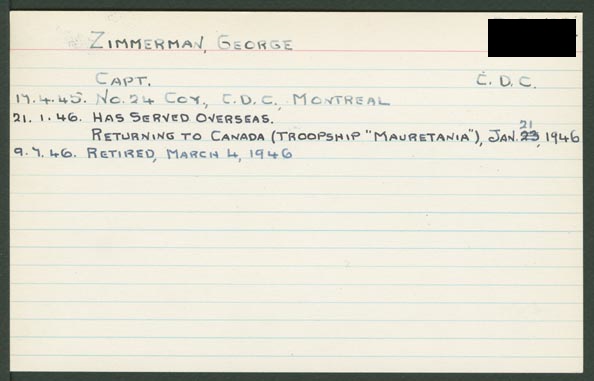 ZIMMERMAN, GEORGE
CAPT. C.D.C.
17.4.45. No. 24 COY., C.D.C., MONTREAL
21.1.46. HAS SERVED OVERSEAS.
21
RETURNING TO CANADA (TROOPSHIP "MAURETANIA"), JAN. 23, 1946
9.7.46. RETIRED, MARCH 4, 1946